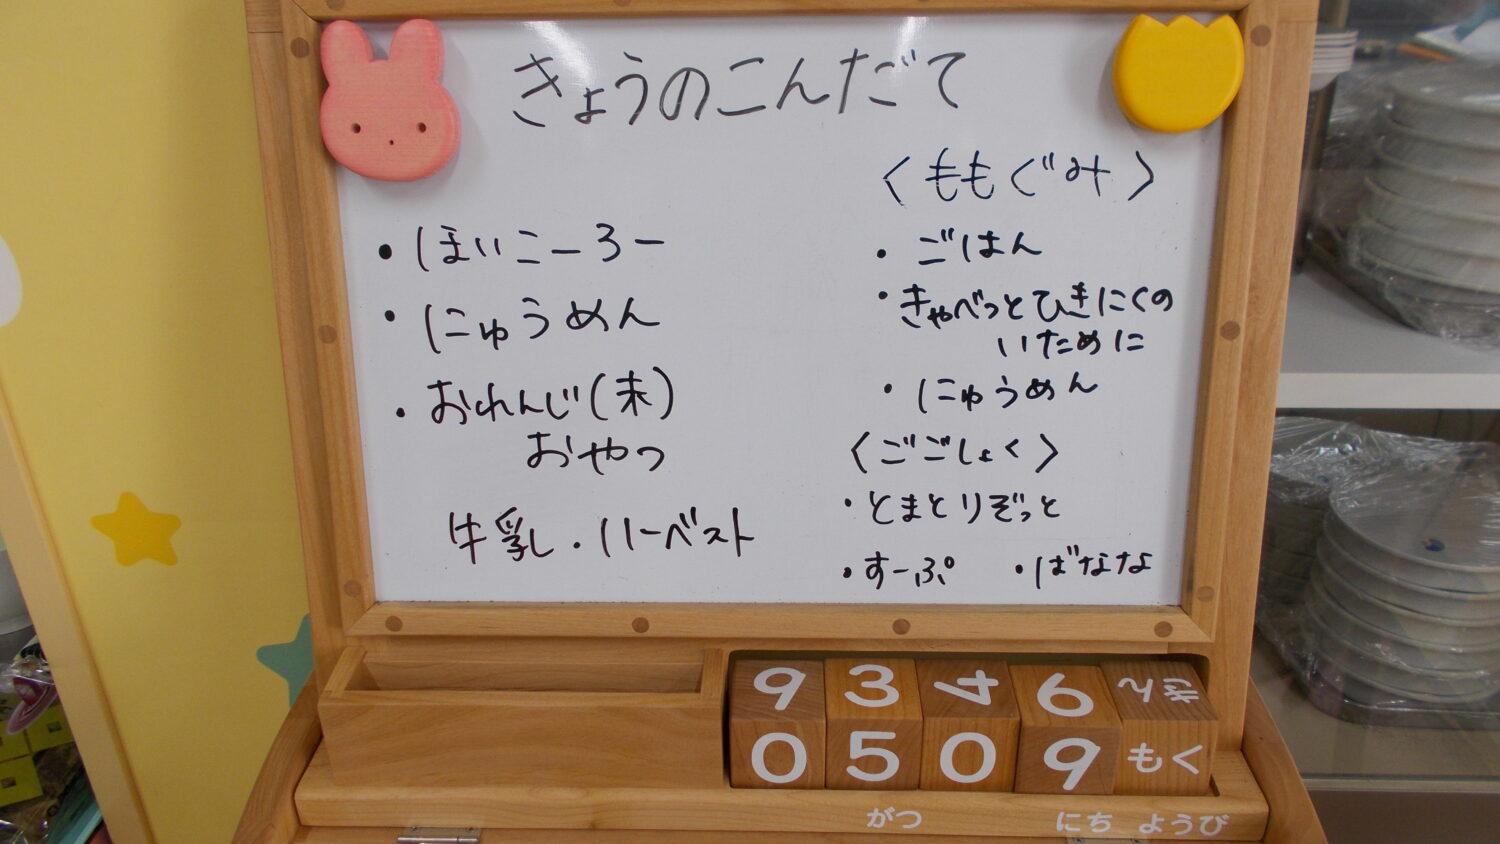 きょうのこんだて
・ほいこーろー
・にゅうめん
・おれんじ(未)
おやつ
牛乳・ハーベスト
〈ももぐみ〉
・ごはん
・きゃべつとひきにくの
いために
・にゅうめん
〈ごごしょく〉
・とまとりぞっと
・すーぷ ・ばなな
9 3 4 6 きん
0 5 0 9 もく
がつ にち ようび